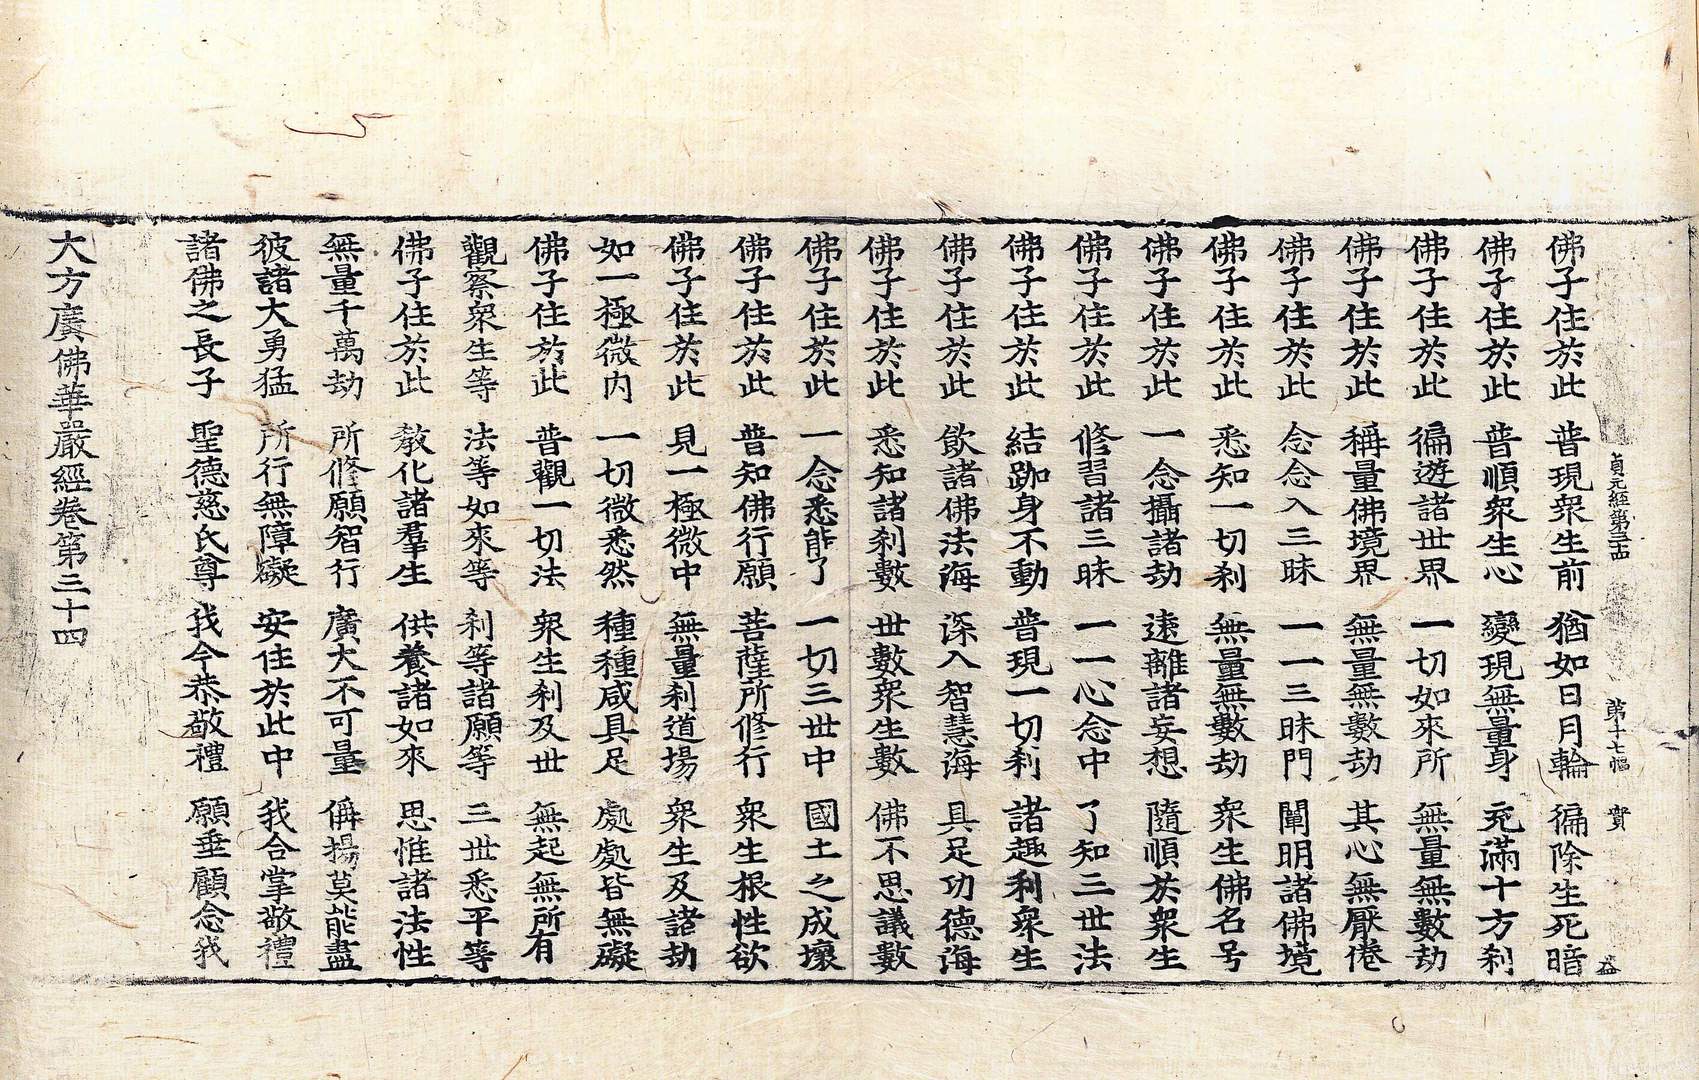 貞元經第三十四 第十七幅 實 益
佛子住於此 普現衆生前 猶如日月輪 徧除生死暗
佛子住於此 普順衆生心 變現無量身 充滿十方刹
佛子住於此 徧遊諸世界 一切如來所 無量無數劫
佛子住於此 稱量佛境界 無量無數劫 其心無厭倦
佛子住於此 念念入三昧 一一三昧門 闡明諸佛境
佛子住於此 悉知一切刹 無量無數劫 衆生佛名号
佛子住於此 一念攝諸劫 遠離諸妄想 隨順於衆生
佛子住於此 修習諸三昧 一一心念中 了知三世法
佛子住於此 結跏身不動 普現一切刹 諸趣利衆生
佛子住於此 飲諸佛法海 深入智慧海 具足功德海
佛子住於此 悉知諸刹數 世數衆生數 佛不思議數
佛子住於此 一念悉能了 一切三世中 國土之成壞
佛子住於此 普知佛行願 菩薩所修行 衆生根性欲
佛子住於此 見一極微中 無量刹道場 衆生及諸劫
如一極微内 一切微悉然 種種咸具足 處處皆無礙
佛子住於此 普觀一切法 衆生刹及世 無起無所有
觀察衆生等 法等如來等 刹等諸願等 三世悉平等
佛子住於此 教化諸羣生 供養諸如來 思惟諸法性
無量千萬劫 所修願智行 廣大不可量 偁揚莫能盡
彼諸大勇猛 所行無障礙 安住於此中 我合掌敬禮
諸佛之長子 聖德慈氏尊 我今恭敬禮 願垂顧念我
大方廣佛華嚴經卷第三十四